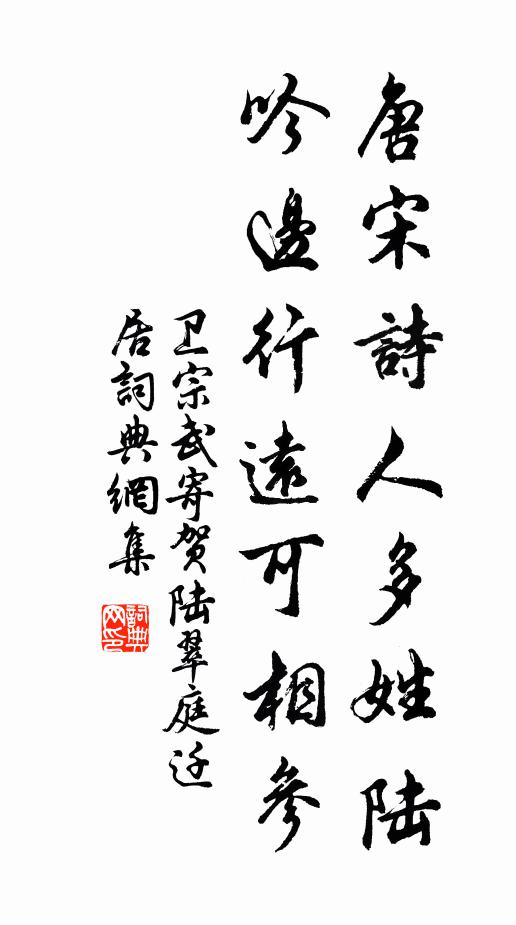 唐宋詩人多姓陆
吟邊行遠可相參
卫宗武寄贺陆翠庭迁
居詞典網集
詞典
网印